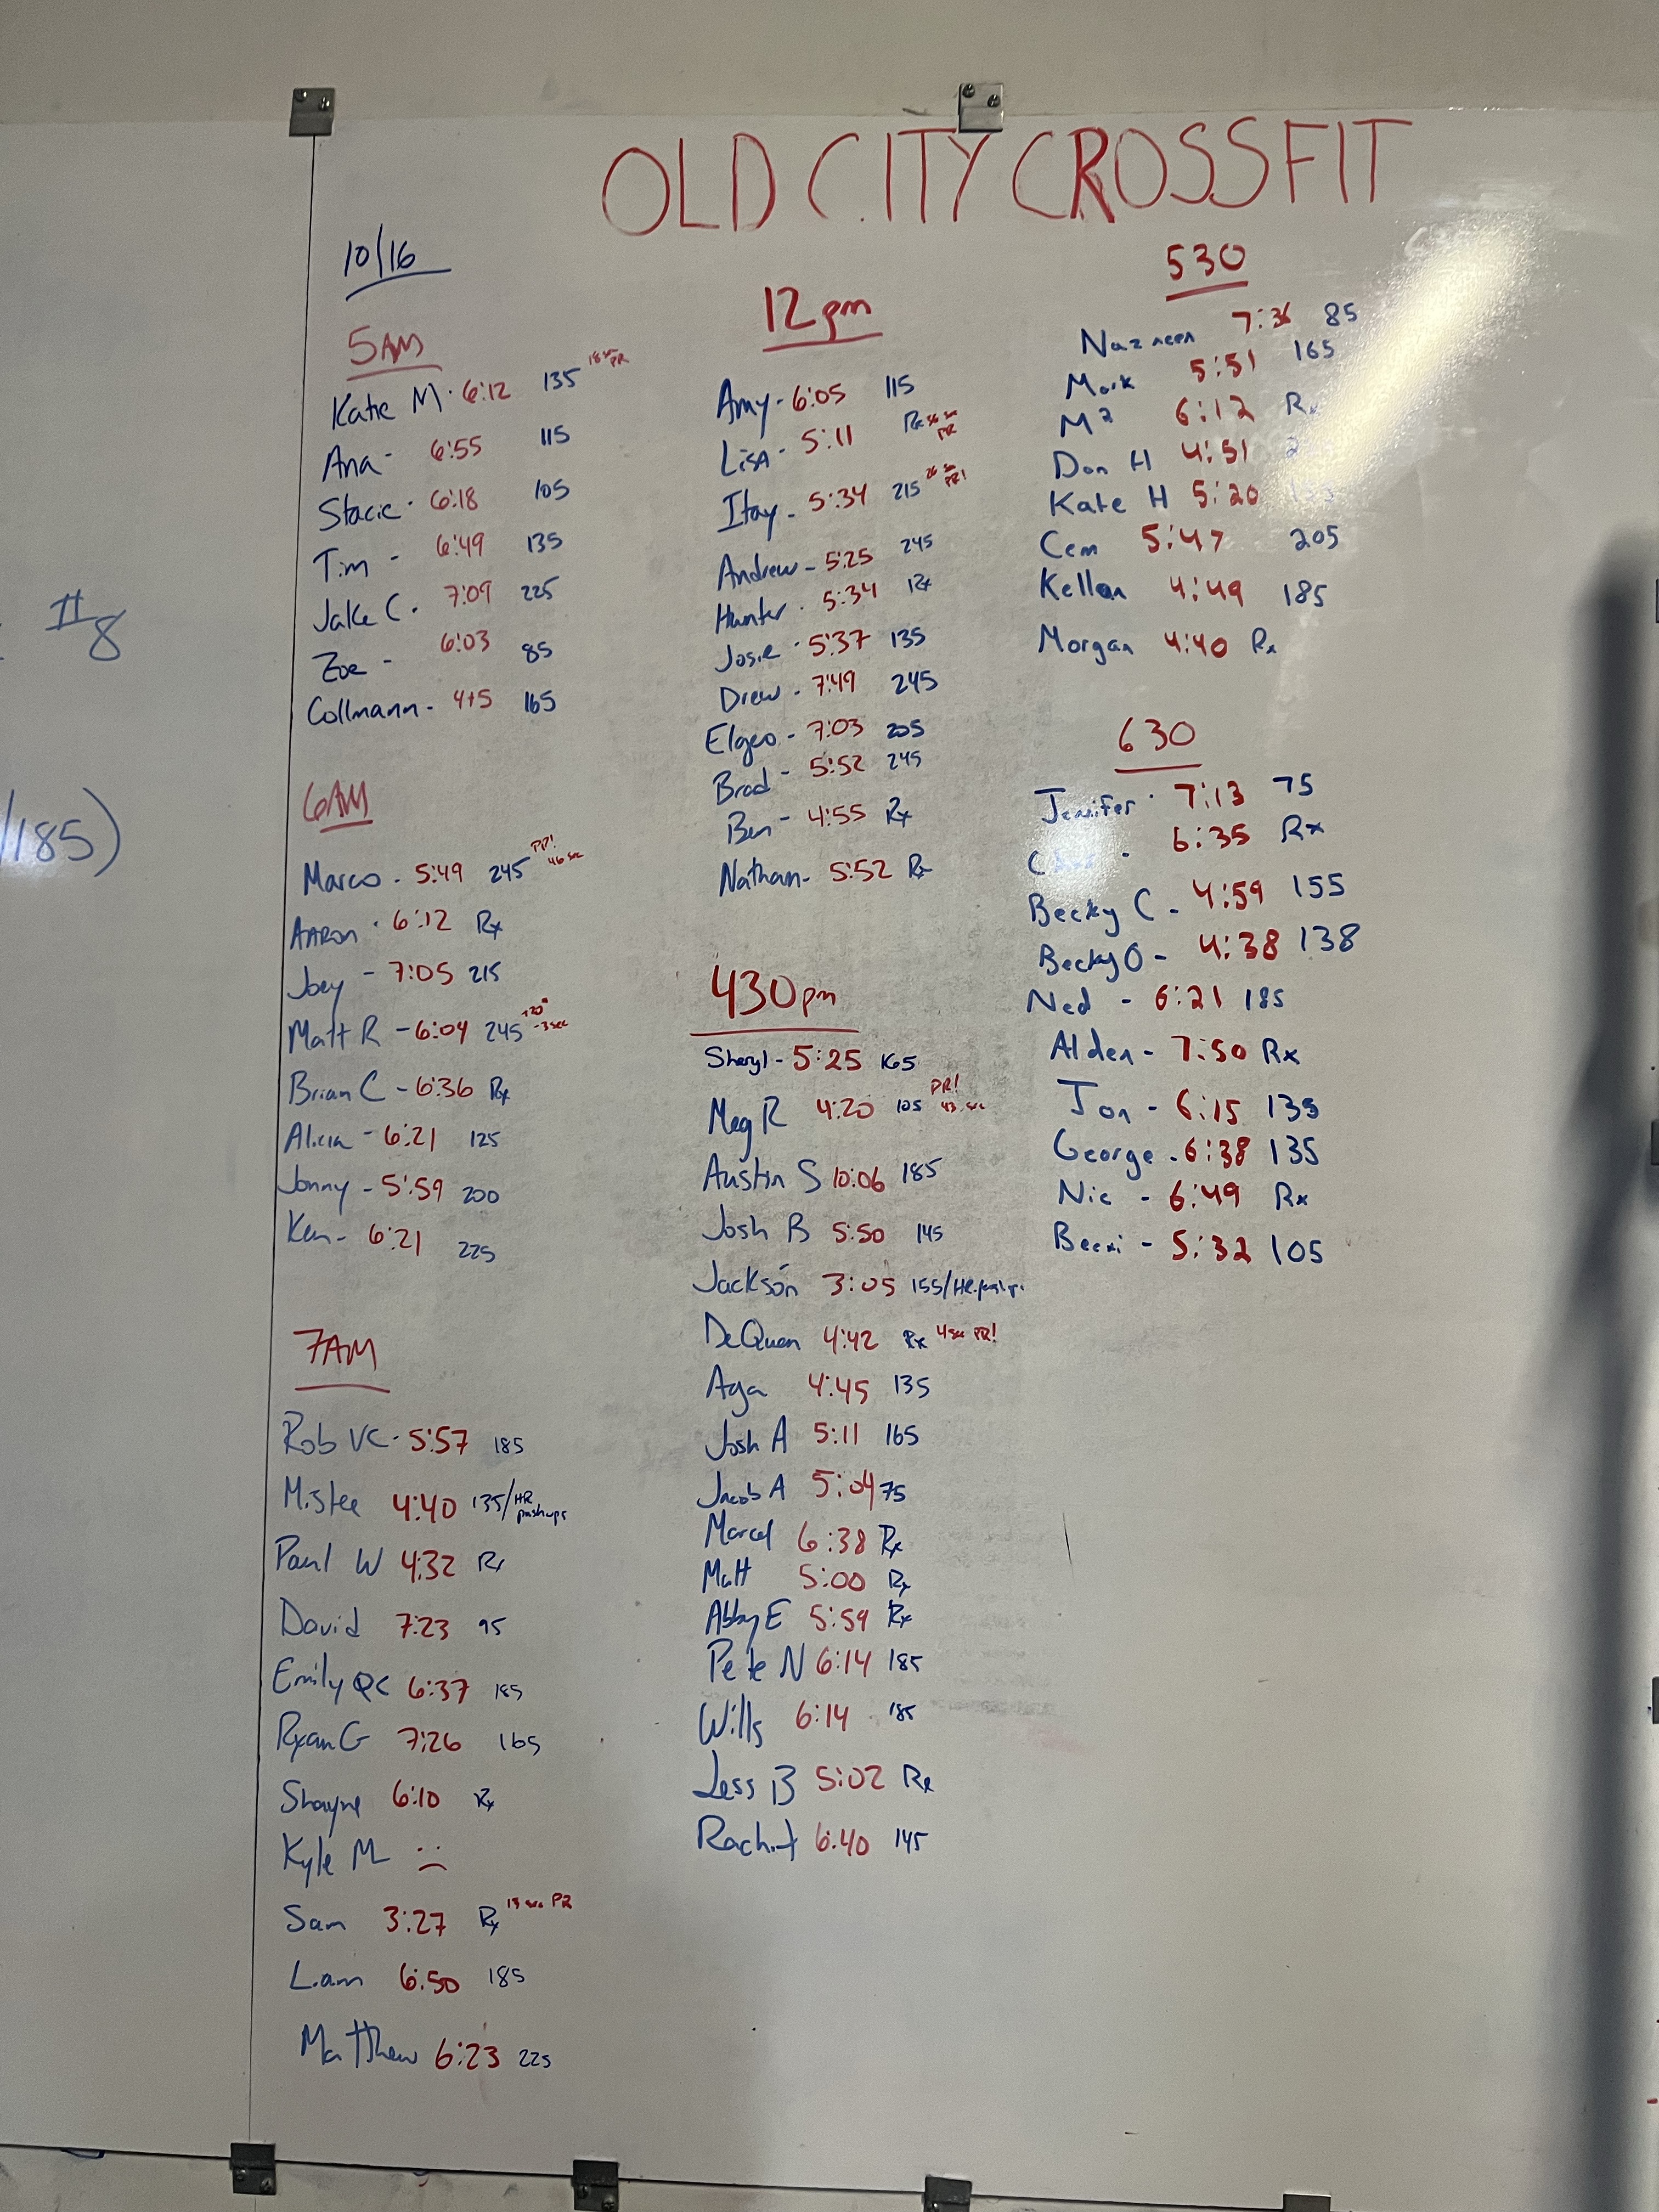 OLD CITY CROSSFIT
10/16
5AM
Katie M. 6:12 135 18 sec PR
Ana - 6:55 115
Stacie - 6:18 105
Tim - 6:49 135
Jake C. 7:09 225
Zoe - 6:03 85
Collmann - 4+5 165
6AM
Marco - 5:49 245 PR! 46 sec
AARON - 6:12 Rx
Joey - 7:05 215
Matt R - 6:04 245 +20# -3 sec
Brian C - 6:36 Rx
Alicia - 6:21 125
Jonny - 5:59 200
Ken - 6:21 225
7AM
Rob VC - 5:57 185
Mistee 4:40 135/HR pushups
Paul W 4:32 Rx
David 7:23 95
Emily QC 6:37 185
Ryan G 7:26 165
Shayne 6:10 Rx
Kyle M
Sam 3:27 Rx 13 sec PR
Liam 6:50 185
Matthew 6:23 225
12pm
Amy - 6:05 115
LISA - 5:11 Rx sec PR
Itay - 5:34 215 26 sec PR!
Andrew - 5:25 245
Hunter - 5:34 Rx
Josie - 5:37 135
Drew - 7:49 245
Elgeo - 7:03 205
Brad - 5:52 245
Ben - 4:55 Rx
Nathan - 5:52 Rx
430pm
Sheryl - 5:25 165
Meg R 4:20 105 PR! 43 sec
Austin S 10:06 185
Josh B 5:50 145
Jackson 3:05 155/HR pushups
DeQuan 4:42 Rx 4 sec PR!
Aga 4:45 135
Josh A 5:11 165
Jacob A 5:04 75
Marcel 6:38 Rx
Matt 5:00 Rx
Abby E 5:59 Rx
Pete N 6:14 185
Wills 6:14 185
Jess B 5:02 Rx
Rachit 6:40 145
530
Nazneen 7:36 85
Mark 5:51 165
M² 6:12 Rx
Don H 4:51
Kate H 5:20
Cem 5:47 205
Kellan 4:49 185
Morgan 4:40 Rx
630
Jennifer - 7:13 75
6:35 Rx
Becky C - 4:59 155
Becky O - 4:38 138
Ned - 6:21 185
Alden - 7:50 Rx
Jon - 6:15 135
George - 6:38 135
Nic - 6:49 Rx
Becxi - 5:32 105
#8
/185)